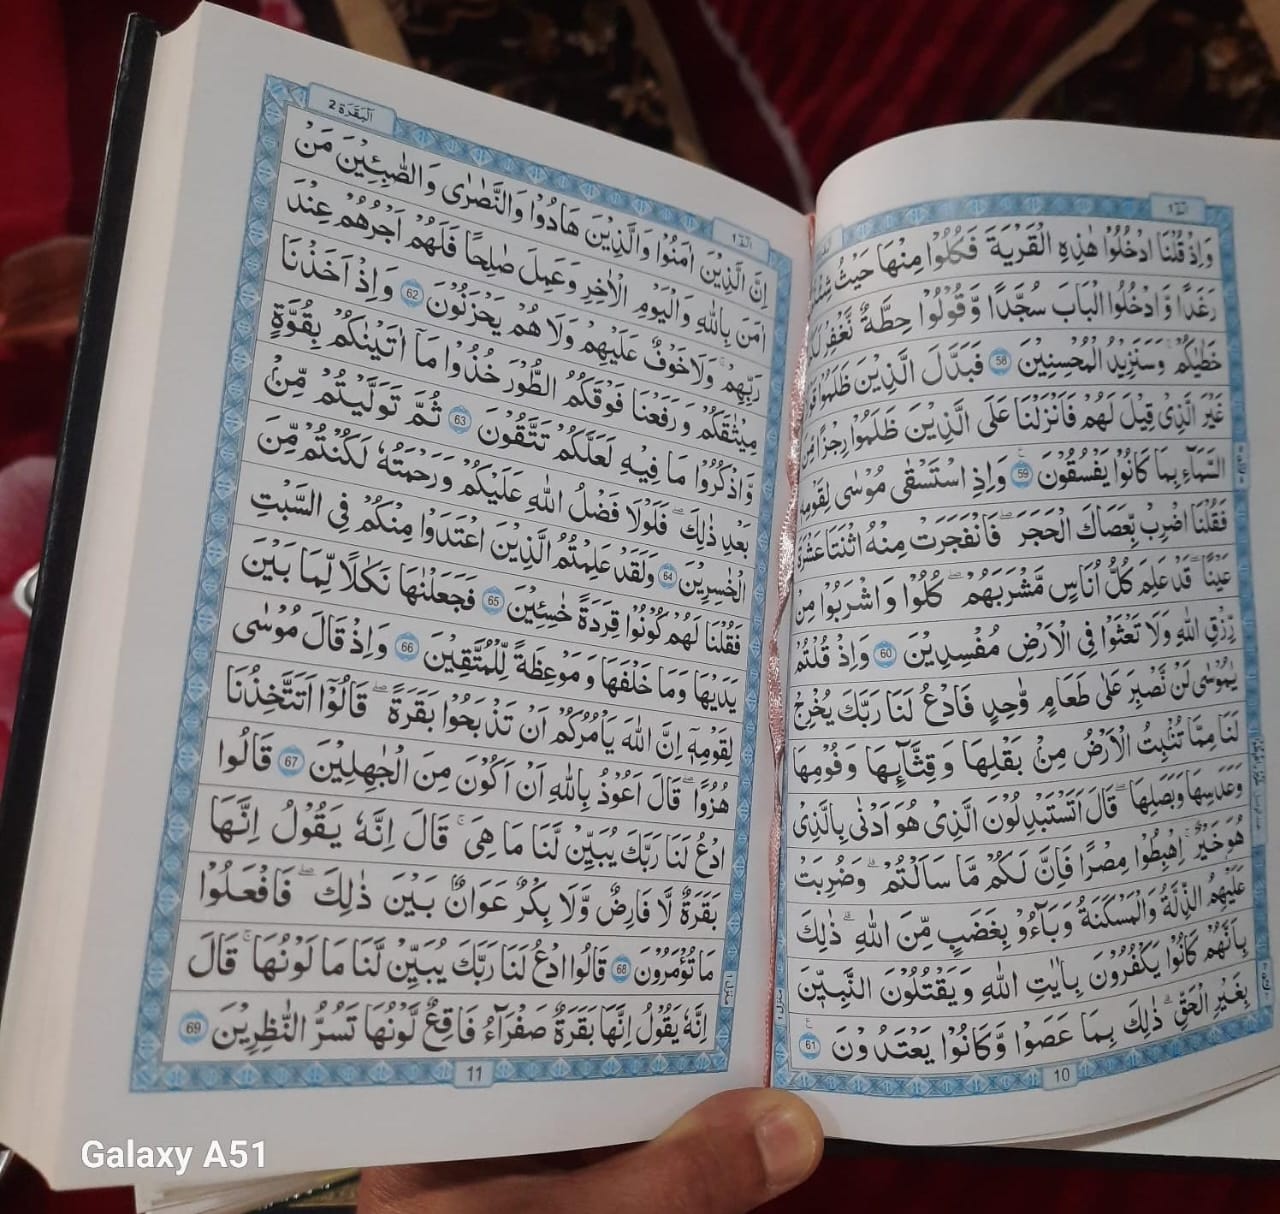 الٓمّٓ ١
وَاِذْ قُلْنَا ادْخُلُوْا هٰذِهِ الْقَرْيَةَ فَكُلُوْا مِنْهَا حَيْثُ
رَغَدًا وَّادْخُلُوا الْبَابَ سُجَّدًا وَّقُوْلُوْا حِطَّةٌ نَّغْفِرْ
خَطٰيٰكُمْ ۚ وَسَنَزِيْدُ الْمُحْسِنِيْنَ 58 فَبَدَّلَ الَّذِيْنَ ظَلَمُوْا
غَيْرَ الَّذِيْ قِيْلَ لَهُمْ فَاَنْزَلْنَا عَلَى الَّذِيْنَ ظَلَمُوْا رِجْزًا مِّنَ
السَّمَآءِ بِمَا كَانُوْا يَفْسُقُوْنَ 59 وَاِذِ اسْتَسْقٰى مُوْسٰى لِقَوْمِهٖ
فَقُلْنَا اضْرِبْ بِّعَصَاكَ الْحَجَرَ ۖ فَانْفَجَرَتْ مِنْهُ اثْنَتَا عَشْرَةَ
عَيْنًا ۖ قَدْ عَلِمَ كُلُّ اُنَاسٍ مَّشْرَبَهُمْ ۖ كُلُوْا وَاشْرَبُوْا مِنْ
رِّزْقِ اللّٰهِ وَلَا تَعْثَوْا فِى الْاَرْضِ مُفْسِدِيْنَ 60 وَاِذْ قُلْتُمْ
يٰمُوْسٰى لَنْ نَّصْبِرَ عَلٰى طَعَامٍ وَّاحِدٍ فَادْعُ لَنَا رَبَّكَ يُخْرِجْ
لَنَا مِمَّا تُنْۢبِتُ الْاَرْضُ مِنْۢ بَقْلِهَا وَقِثَّآئِهَا وَفُوْمِهَا
وَعَدَسِهَا وَبَصَلِهَا ۖ قَالَ اَتَسْتَبْدِلُوْنَ الَّذِيْ هُوَ اَدْنٰى بِالَّذِيْ
هُوَ خَيْرٌ ۚ اِهْبِطُوْا مِصْرًا فَاِنَّ لَكُمْ مَّا سَاَلْتُمْ ۗ وَضُرِبَتْ
عَلَيْهِمُ الذِّلَّةُ وَالْمَسْكَنَةُ وَبَآءُوْ بِغَضَبٍ مِّنَ اللّٰهِ ۗ ذٰلِكَ
بِاَنَّهُمْ كَانُوْا يَكْفُرُوْنَ بِاٰيٰتِ اللّٰهِ وَيَقْتُلُوْنَ النَّبِيّٖنَ
بِغَيْرِ الْحَقِّ ۗ ذٰلِكَ بِمَا عَصَوْا وَّكَانُوْا يَعْتَدُوْنَ 61
10
منزل ١
الٓمّٓ ١
اَلْبَقَرَة 2
اِنَّ الَّذِيْنَ اٰمَنُوْا وَالَّذِيْنَ هَادُوْا وَالنَّصٰرٰى وَالصّٰبِـِٕيْنَ مَنْ
اٰمَنَ بِاللّٰهِ وَالْيَوْمِ الْاٰخِرِ وَعَمِلَ صَالِحًا فَلَهُمْ اَجْرُهُمْ عِنْدَ
رَبِّهِمْ ۚ وَلَا خَوْفٌ عَلَيْهِمْ وَلَا هُمْ يَحْزَنُوْنَ 62 وَاِذْ اَخَذْنَا
مِيْثَاقَكُمْ وَرَفَعْنَا فَوْقَكُمُ الطُّوْرَ خُذُوْا مَآ اٰتَيْنٰكُمْ بِقُوَّةٍ
وَّاذْكُرُوْا مَا فِيْهِ لَعَلَّكُمْ تَتَّقُوْنَ 63 ثُمَّ تَوَلَّيْتُمْ مِّنْۢ
بَعْدِ ذٰلِكَ ۖ فَلَوْلَا فَضْلُ اللّٰهِ عَلَيْكُمْ وَرَحْمَتُهٗ لَكُنْتُمْ مِّنَ
الْخٰسِرِيْنَ 64 وَلَقَدْ عَلِمْتُمُ الَّذِيْنَ اعْتَدَوْا مِنْكُمْ فِى السَّبْتِ
فَقُلْنَا لَهُمْ كُوْنُوْا قِرَدَةً خٰسِـِٕيْنَ 65 فَجَعَلْنٰهَا نَكَالًا لِّمَا بَيْنَ
يَدَيْهَا وَمَا خَلْفَهَا وَمَوْعِظَةً لِّلْمُتَّقِيْنَ 66 وَاِذْ قَالَ مُوْسٰى
لِقَوْمِهٖٓ اِنَّ اللّٰهَ يَاْمُرُكُمْ اَنْ تَذْبَحُوْا بَقَرَةً ۖ قَالُوْٓا اَتَتَّخِذُنَا
هُزُوًا ۖ قَالَ اَعُوْذُ بِاللّٰهِ اَنْ اَكُوْنَ مِنَ الْجٰهِلِيْنَ 67 قَالُوا
ادْعُ لَنَا رَبَّكَ يُبَيِّنْ لَّنَا مَا هِىَ ۚ قَالَ اِنَّهٗ يَقُوْلُ اِنَّهَا
بَقَرَةٌ لَّا فَارِضٌ وَّلَا بِكْرٌ عَوَانٌۢ بَيْنَ ذٰلِكَ ۖ فَافْعَلُوْا
مَا تُؤْمَرُوْنَ 68 قَالُوا ادْعُ لَنَا رَبَّكَ يُبَيِّنْ لَّنَا مَا لَوْنُهَا ۚ قَالَ
اِنَّهٗ يَقُوْلُ اِنَّهَا بَقَرَةٌ صَفْرَآءُ فَاقِعٌ لَّوْنُهَا تَسُرُّ النّٰظِرِيْنَ 69
منزل ١
11
Galaxy A51